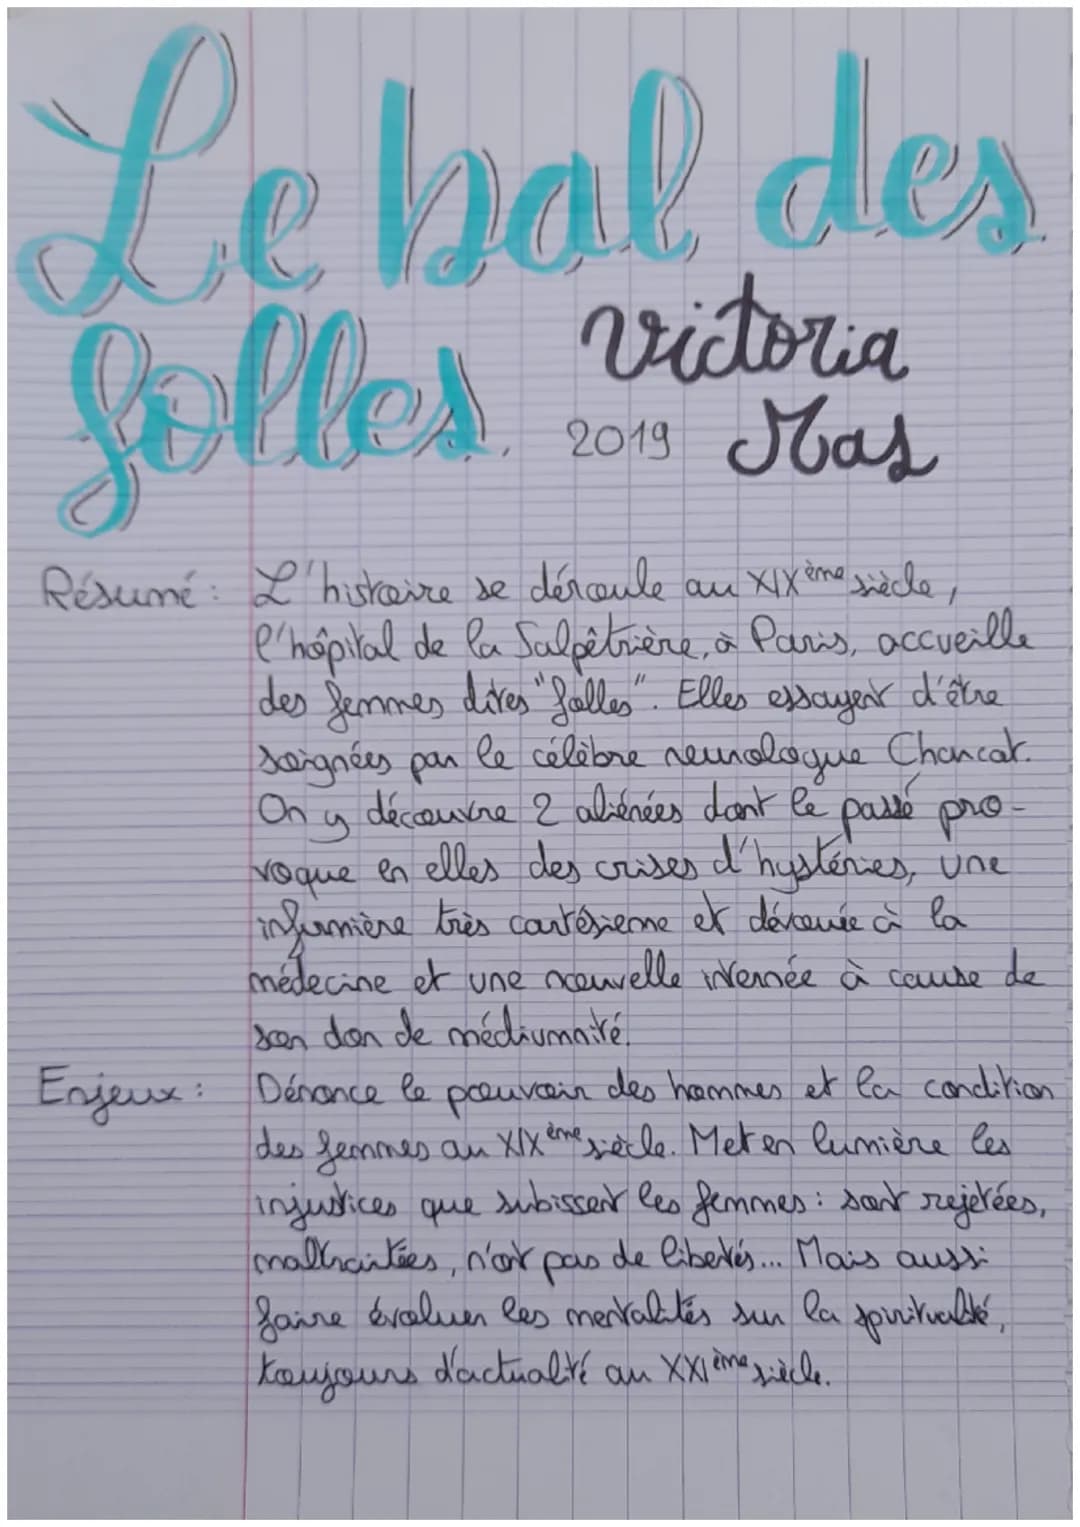 Le bal des
folles.
Victoria
2019 Mas
Résumé : L'histoire se déroule au XIXème siècle,
l'hôpital de la Salpêtrière, à Paris, accueille
des femmes dites "folles". Elles essayent d'être
soignées par le célèbre neurologue Charcot.
On y découvre 2 aliénées dont le passé pro-
voque en elles des crises d'hystéries, une
infirmière très cartésienne et dévouée à la
médecine et une nouvelle internée à cause de
son don de médiumnité.
Enjeux : Dénonce le pouvoir des hommes et la condition
des femmes au XIXème siècle. Met en lumière les
injustices que subissent les femmes : sont rejetées,
maltraitées, n'ont pas de libertés... Mais aussi
faire évoluer les mentalités sur la spiritualité,
toujours d'actualité au XXIème siècle.